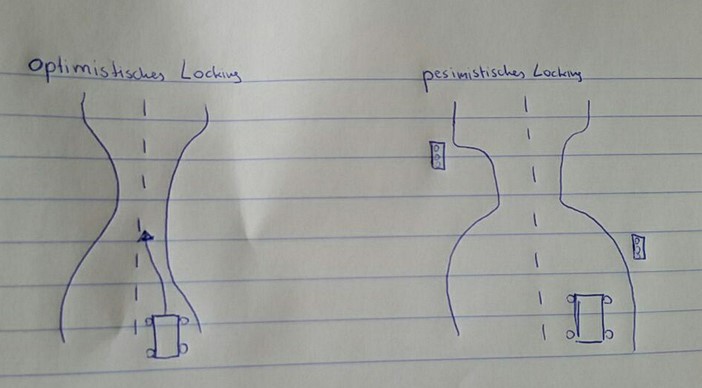 Optimistisches Locking
pesimistisches Locking